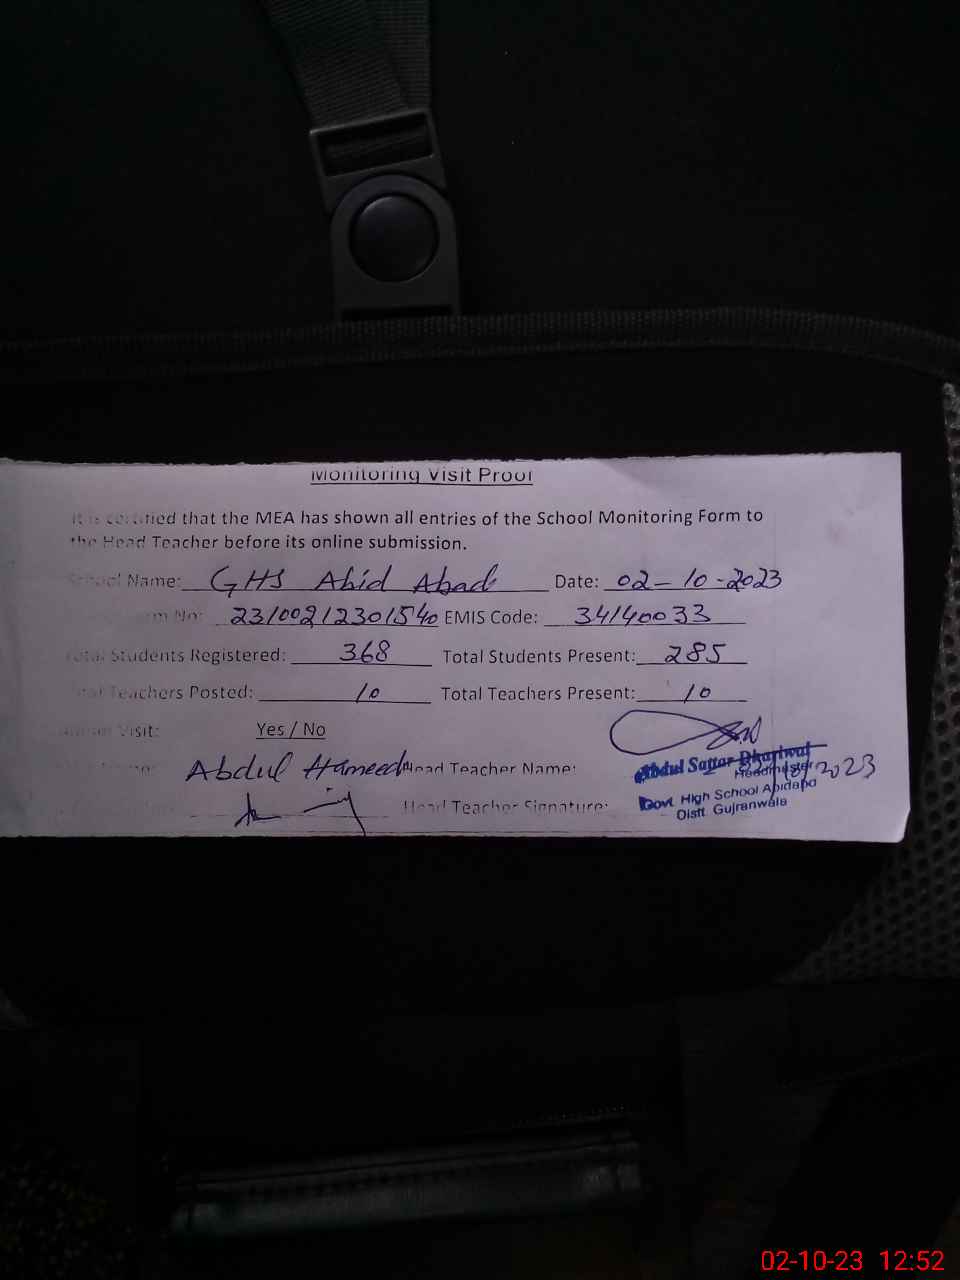 Monitoring Visit Proof
It is certified that the MEA has shown all entries of the School Monitoring Form to
the Head Teacher before its online submission.
School Name: GHS Abid Abad Date: 02-10-2023
No: 23100212301540 EMIS Code: 34140033
Total Students Registered: 368 Total Students Present: 285
Total Teachers Posted: 10 Total Teachers Present: 10
Visit: Yes / No
Abdul Hameed Head Teacher Name: Abdul Sattar Dhariwal
Headmaster 2023
Head Teacher Signature: Govt. High School Abidabd
Distt. Gujranwala
02-10-23 12:52